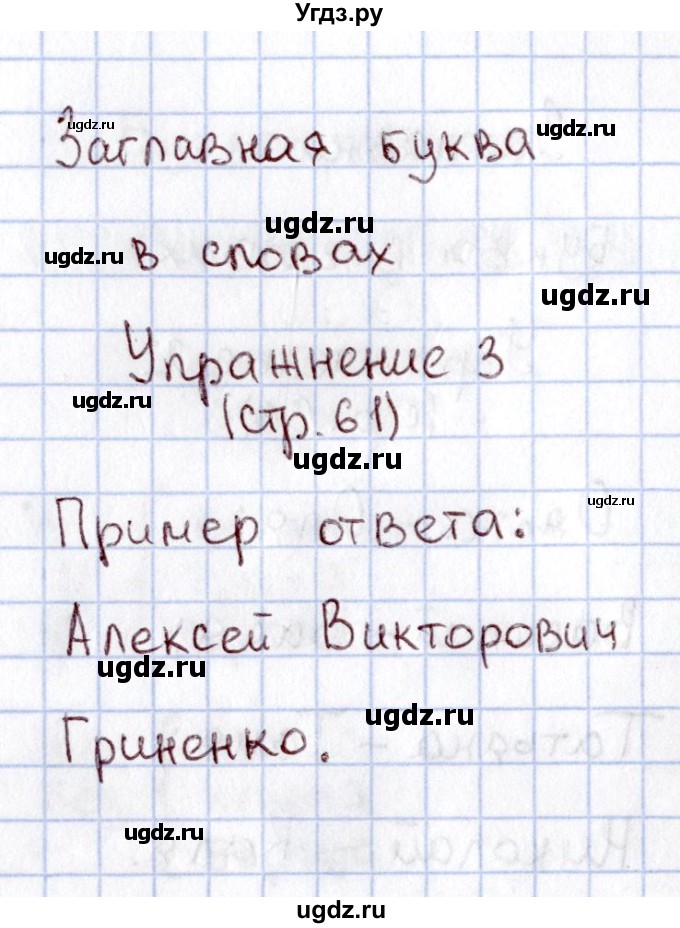 Угдз.ру
Заглавная буква
ugdz.ru
ugdz.ru
в словах
ugdz.ru
ugdz.ru
ugdz.ru
Упражнение 3
ugdz.ru
(стр. 61)
ugdz.ru
ugdz.ru
Пример ответа:
Алексей Викторович
ugdz.ru
Гриненко.
ugdz.ru
ugdz.ru
ugdz.ru